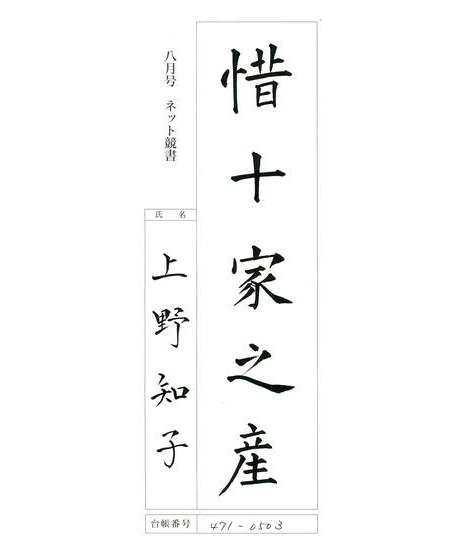 惜十家之産
八月号 ネット競書
氏名
上野知子
台帳番号 471-0503